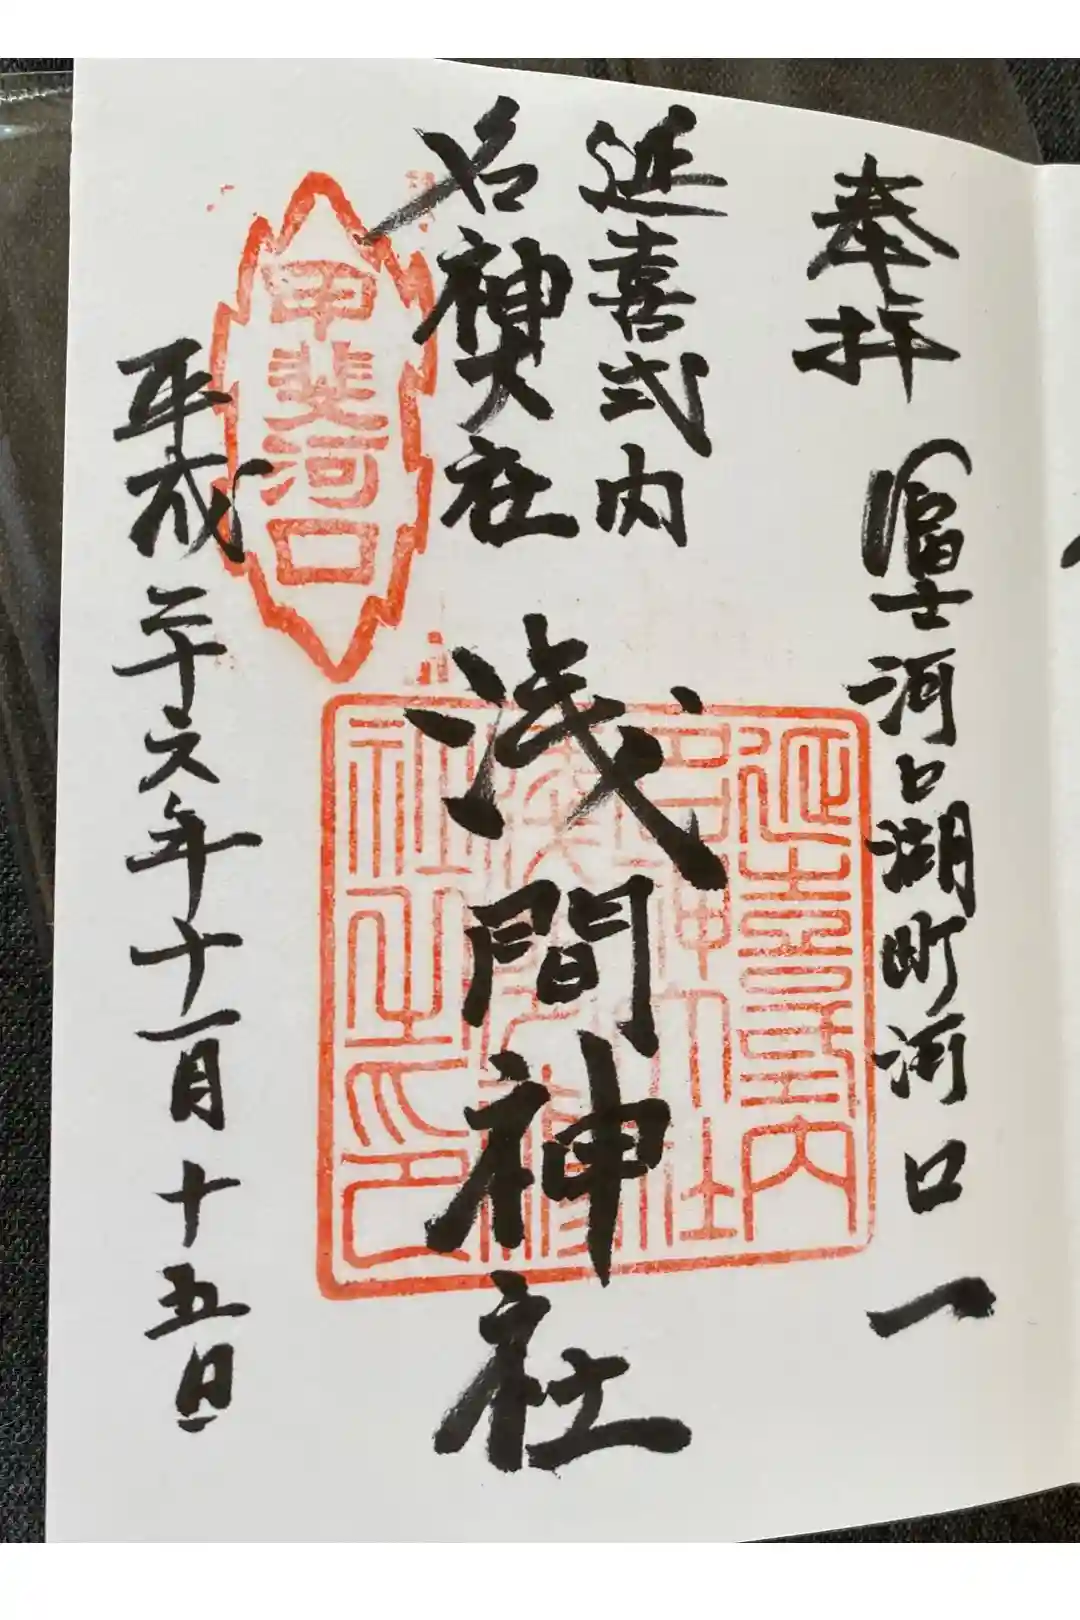 奉拝
富士河口湖町河口一
延喜式内
名神大社
浅間神社
甲斐河口
延喜式内
名神大社
社之印
平成二十六年十一月十五日